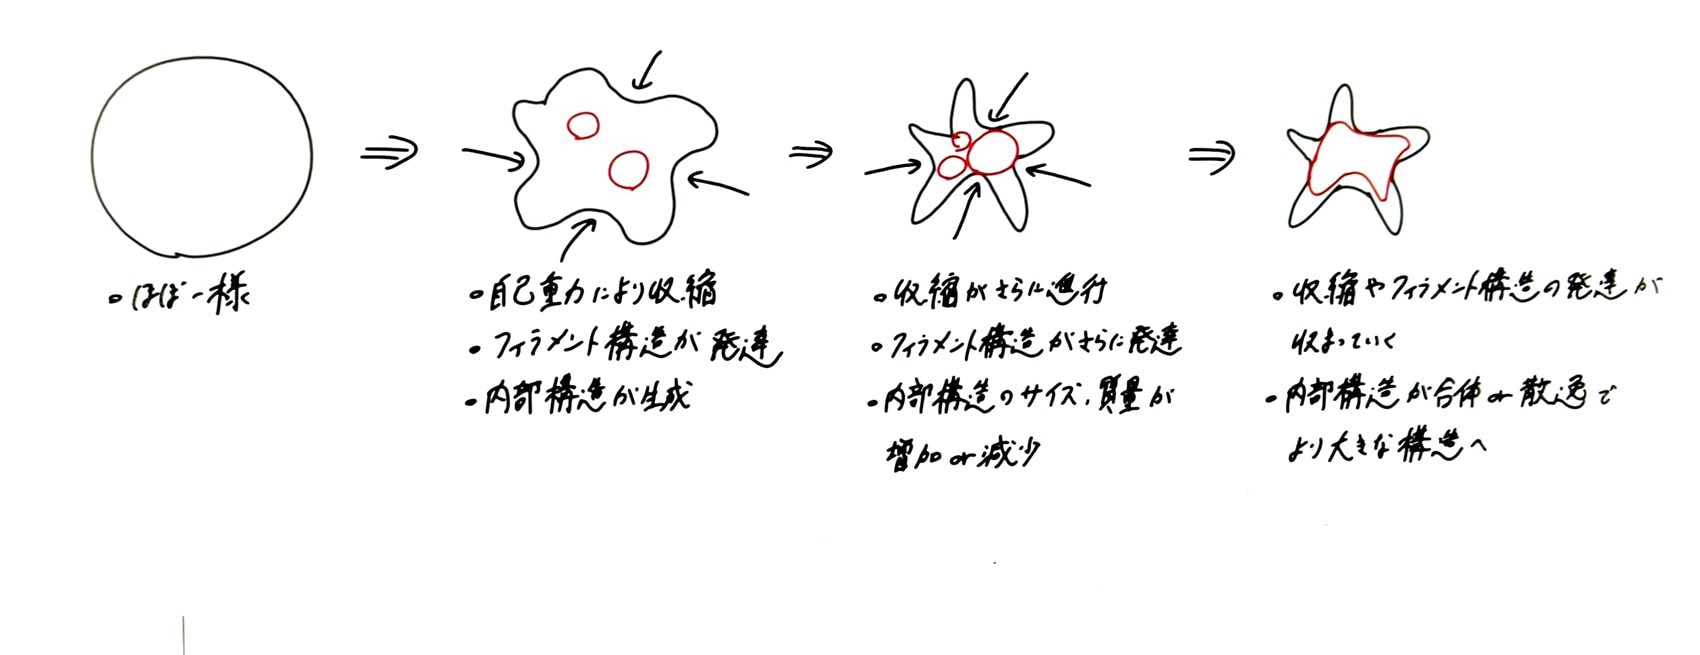 。ほぼ一様
。自己重力により収縮
・フィラメント構造が発達
・内部構造が生成
。収縮がさらに進行
。フィラメント構造がさらに発達
・内部構造のサイズ、質量が
増加or減少
。収縮やフィラメント構造の発達が
収まっていく
・内部構造が合体or散逸で
より大きな構造へ